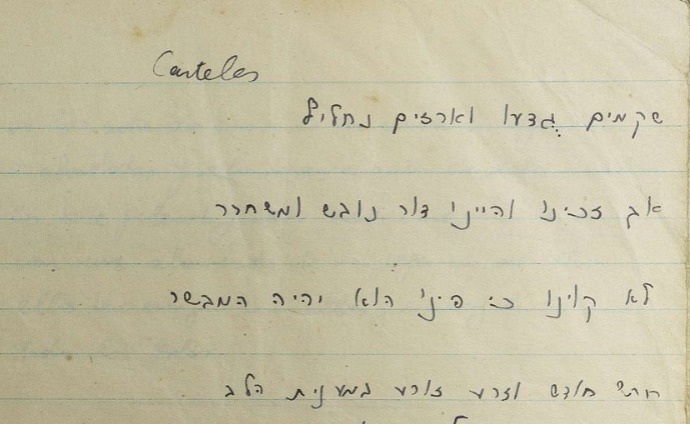 Carteles
שקמים גֻדעו וארזים נחליף
אך זכינו והיינו דור כובש ומשחרר
לא קוינו כי פינו הוא יהיה המבשר
חורש חודש וזרע זורע במענית הלב